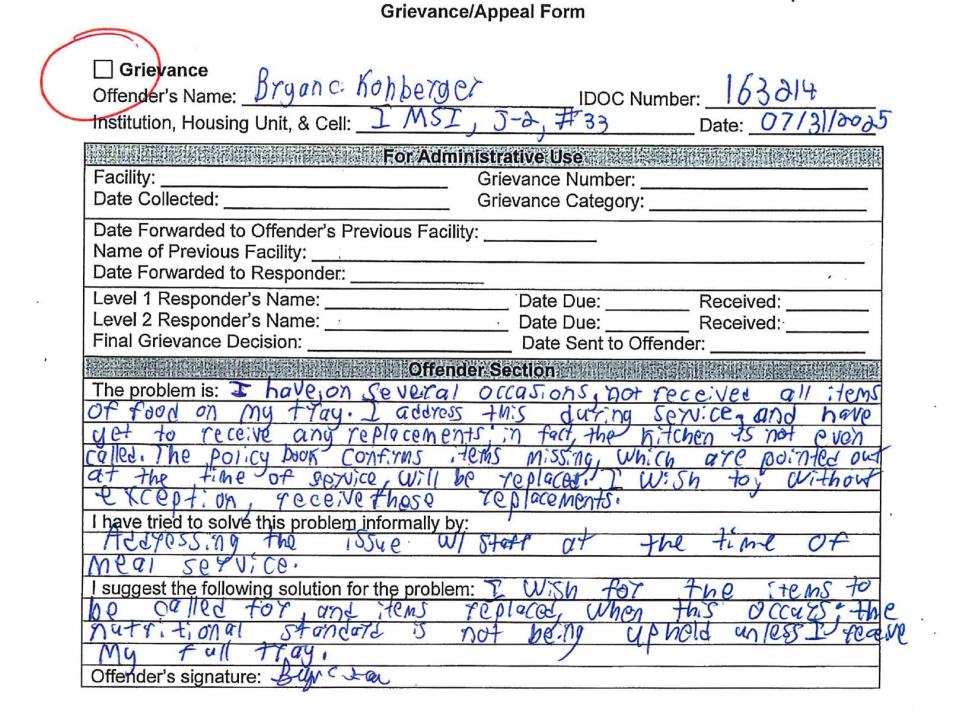 Grievance/Appeal Form
Grievance
Offender's Name: Bryan C. Kohberger IDOC Number: 163214
Institution, Housing Unit, & Cell: IMSI, J-2, #33 Date: 07/31/2025
For Administrative Use
Facility: Grievance Number:
Date Collected: Grievance Category:
Date Forwarded to Offender's Previous Facility:
Name of Previous Facility:
Date Forwarded to Responder:
Level 1 Responder's Name: Date Due: Received:
Level 2 Responder's Name: Date Due: Received:
Final Grievance Decision: Date Sent to Offender:
Offender Section
The problem is: I have, on several occasions, not received all items
of food on my tray. I address this during service, and have
yet to receive any replacements; in fact, the kitchen is not even
called. The policy book confirms items missing, which are pointed out
at the time of service, will be replaced. I wish to, without
exception, receive those replacements.
I have tried to solve this problem informally by:
Addressing the issue w/ staff at the time of
meal service.
I suggest the following solution for the problem: I wish for the items to
be called for, and items replaced, when this occurs; the
nutritional standard is not being uphold unless I
my full tray.
Offender's signature: